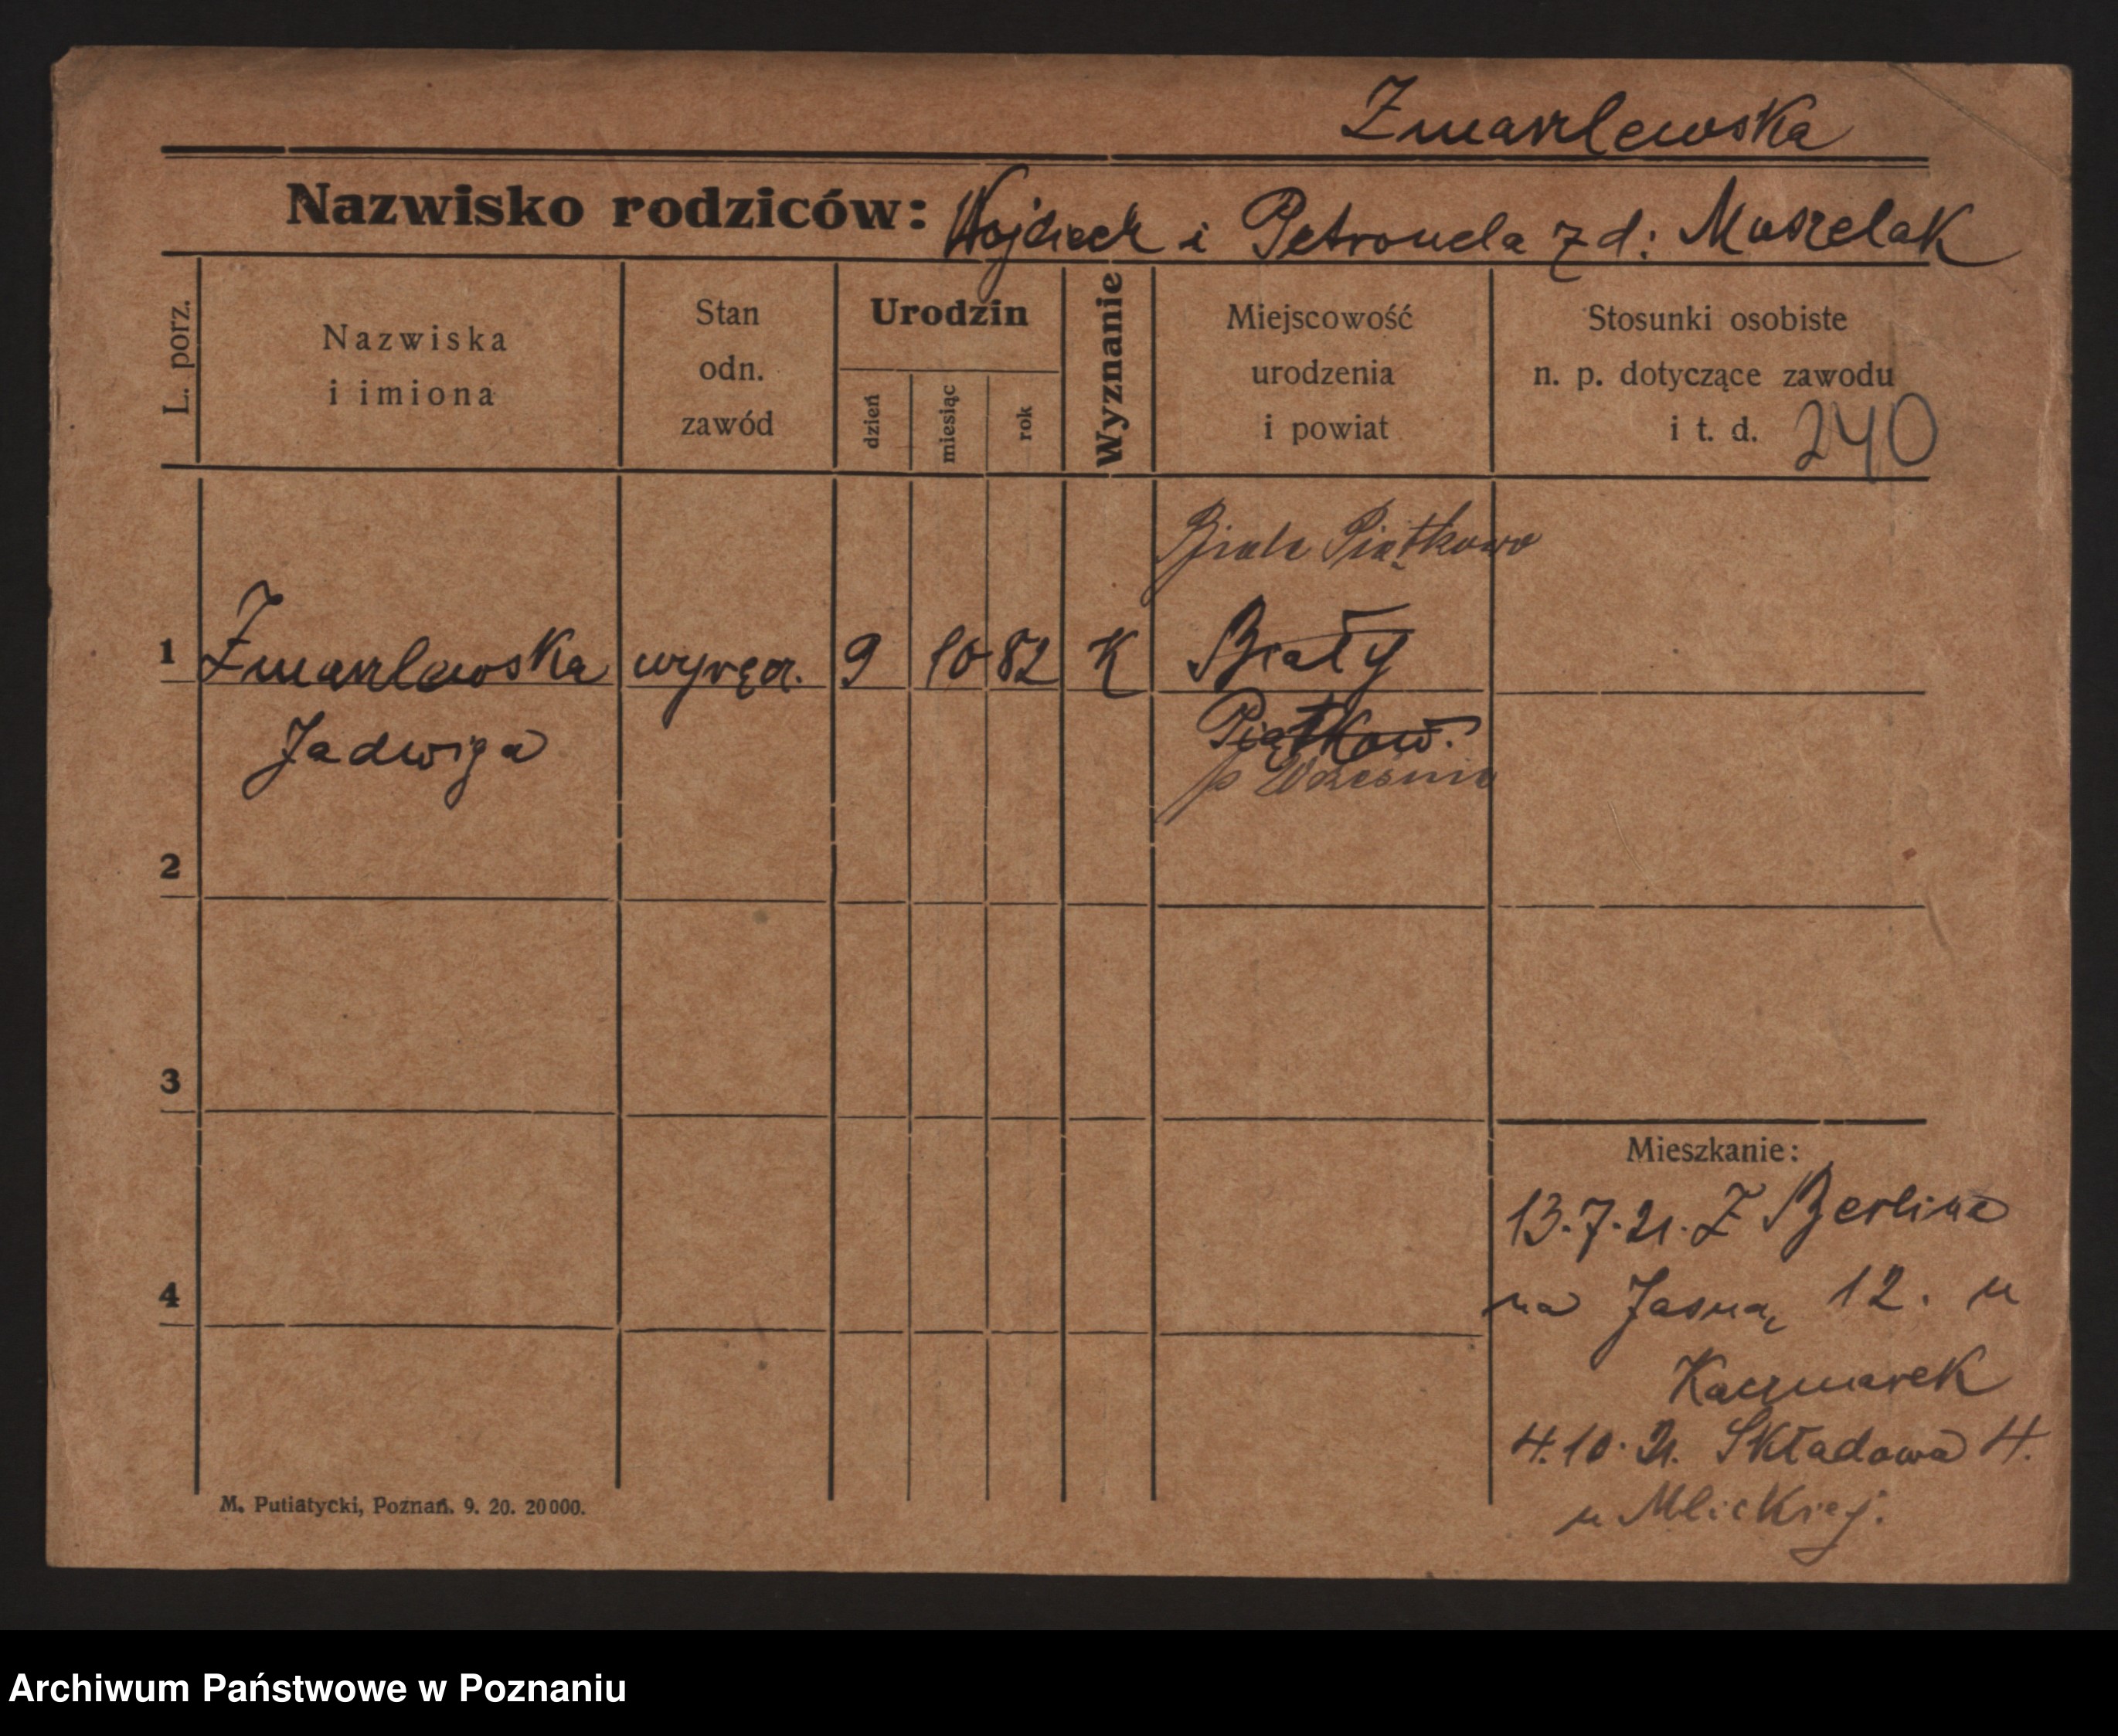 Zmarzlewska
Nazwisko rodziców: Wojciech i Petronela z d: Muszelak
L. porz.
Nazwiska
i imiona
Stan
odn.
zawód
Urodzin
dzień
miesiąc
rok
Wyznanie
Miejscowość
urodzenia
i powiat
Stosunki osobiste
n. p. dotyczące zawodu
i t. d. 240
Białe Piątkowo
1 Zmarzlewska wyręcz. 9 10 82 K Biały
Jadwiga Piątkow.
p Września
2
3
4
Mieszkanie:
13.7.21. Z Berlina
na Jasną 12. u
Kaczmarek
4.10.21. Składowa 4.
u Mlickiej.
M. Putiatycki, Poznań. 9. 20. 20000.
Archiwum Państwowe w Poznaniu